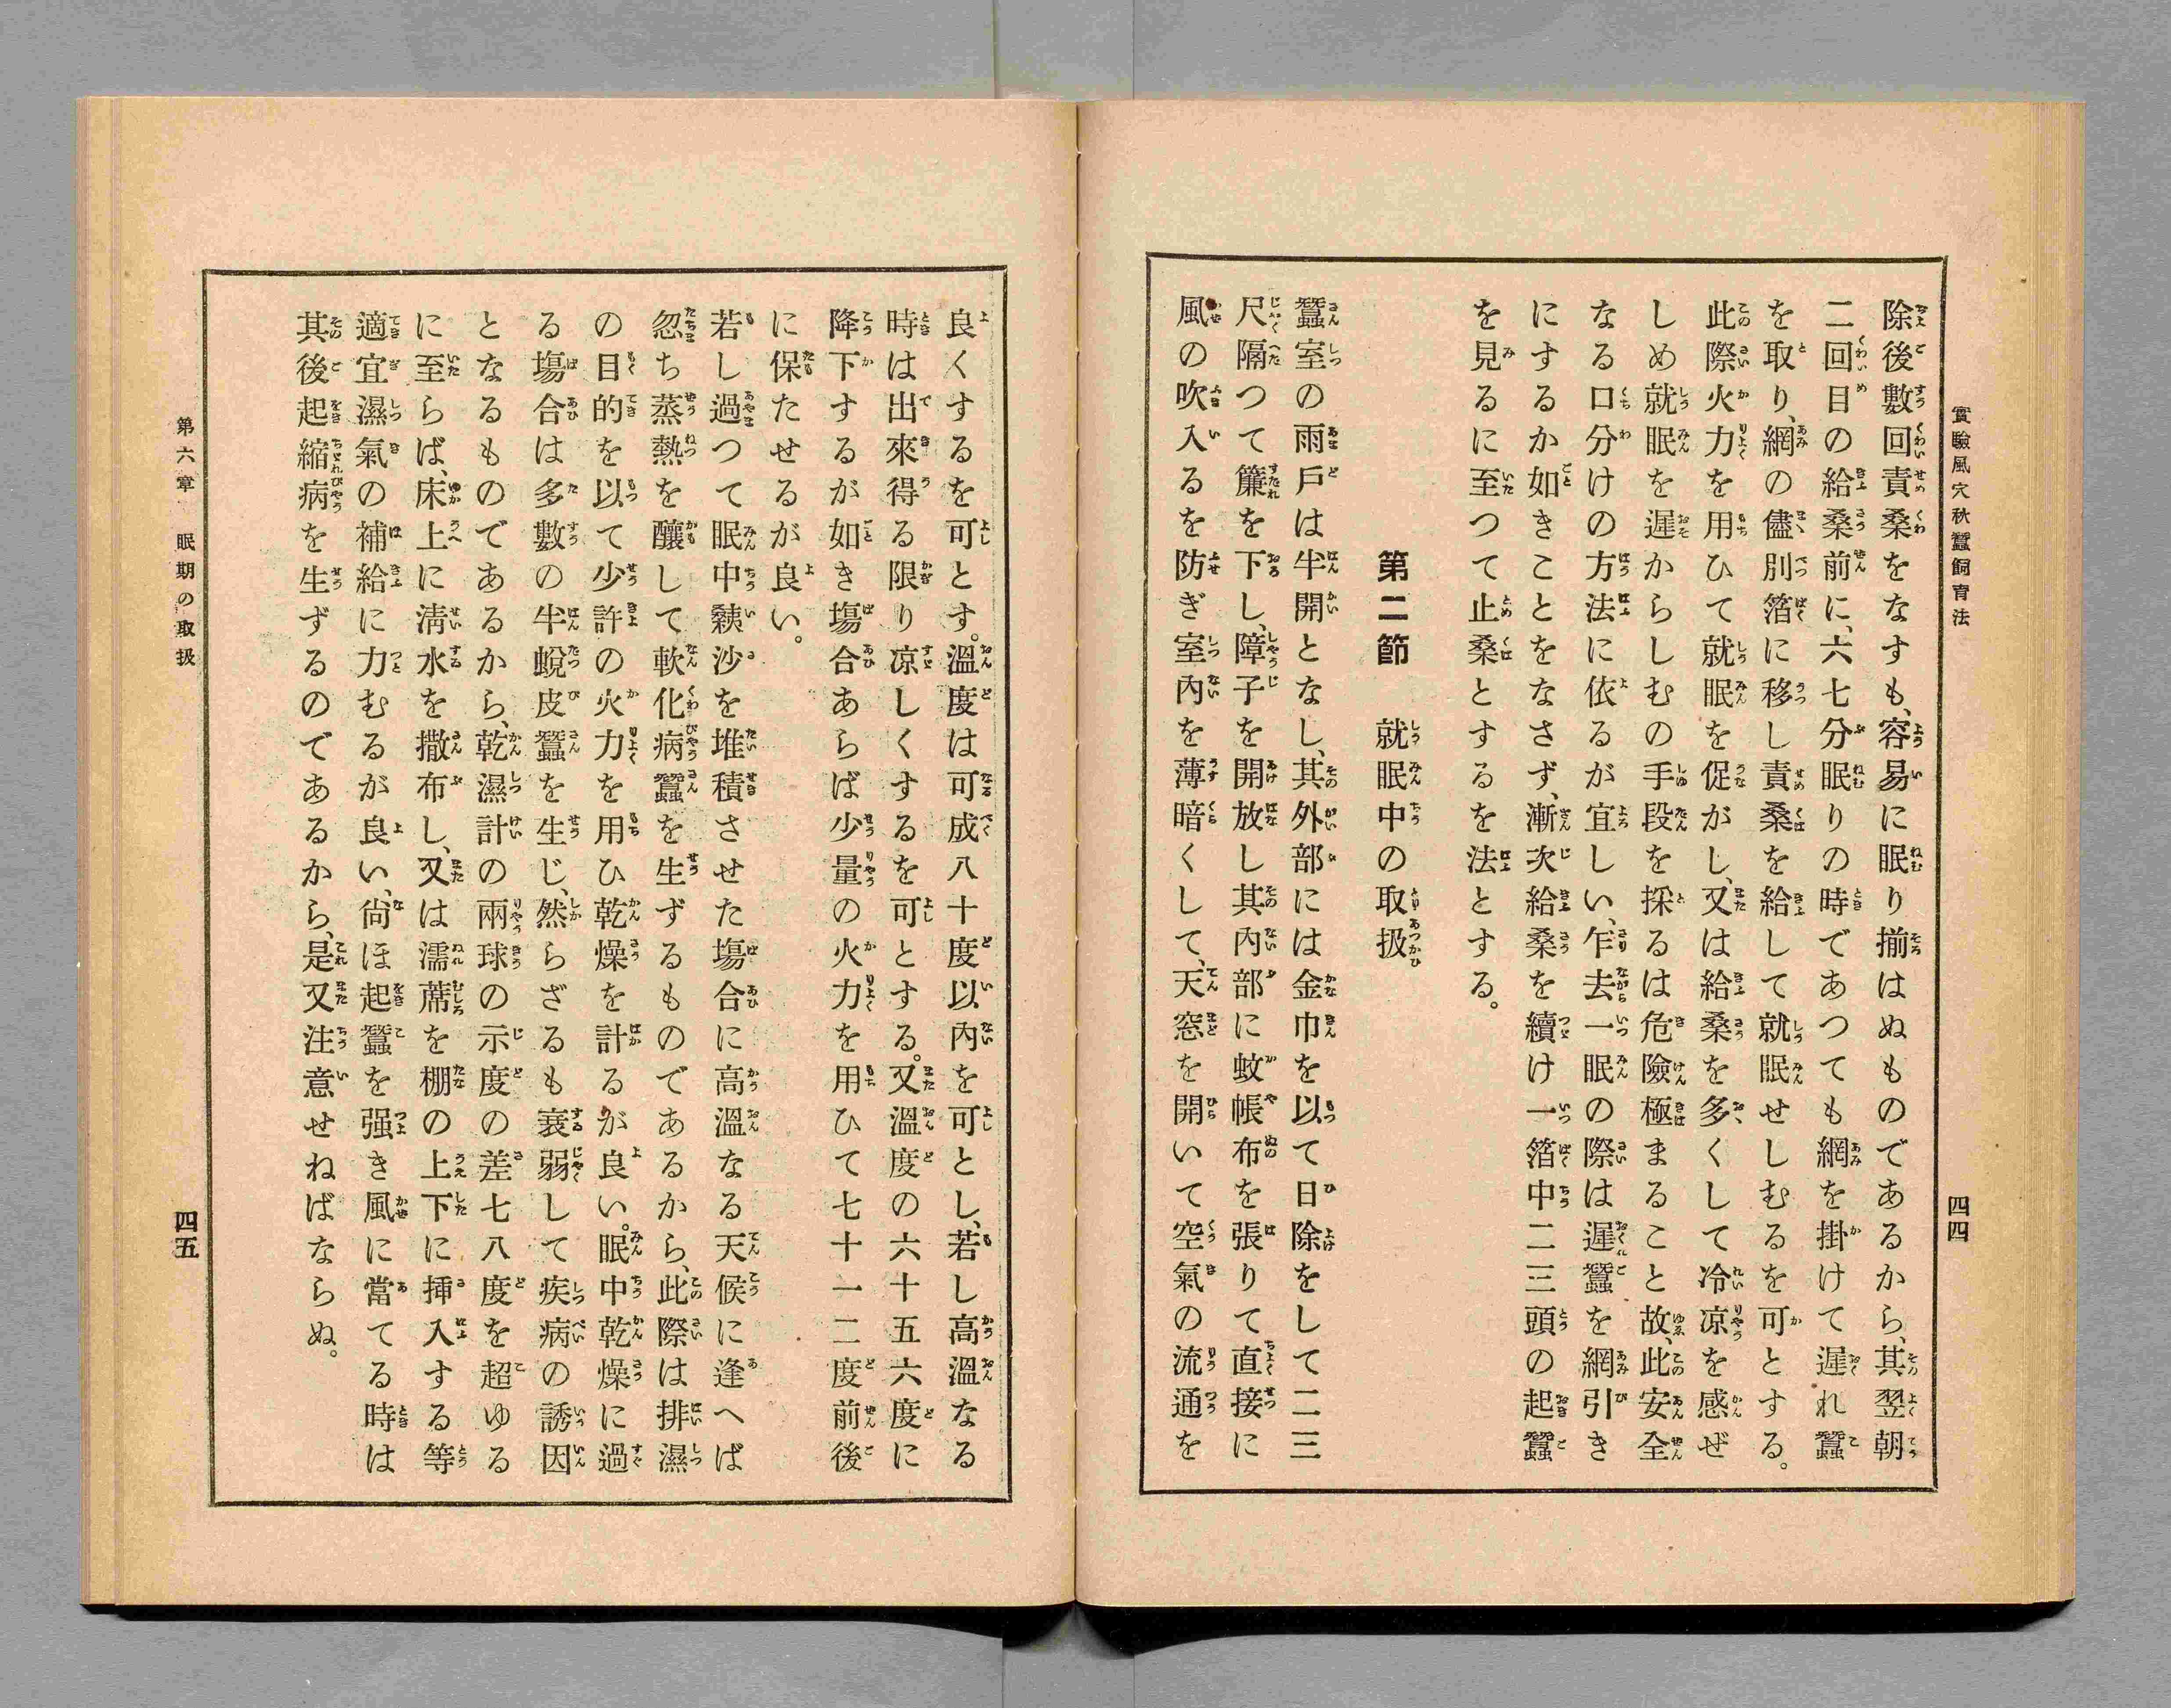 實驗風穴秋蠶飼育法
四四
除後數回責桑をなすも、容易に眠り揃はぬものであるから、其翌朝
二回目の給桑前に、六七分眠りの時であつても網を掛けて遲れ蠶
を取り、網の儘別箔に移し責桑を給して就眠せしむるを可とする。
此際火力を用ひて就眠を促がし、又は給桑を多くして冷凉を感ぜ
しめ就眠を遲からしむの手段を採るは危險極まること故、此安全
なる口分けの方法に依るが宜しい、乍去一眠の際は遲蠶を網引き
にするか如きことをなさず、漸次給桑を續け一箔中二三頭の起蠶
を見るに至つて止桑とするを法とする。
第二節　就眠中の取扱
蠶室の雨戶は半開となし、其外部には金巾を以て日除をして二三
尺隔つて簾を下し、障子を開放し其內部に蚊帳布を張りて直接に
風の吹入るを防ぎ室內を薄暗くして、天窓を開いて空氣の流通を
良くするを可とす。溫度は可成八十度以內を可とし、若し高溫なる
時は出來得る限り凉しくするを可とする。又溫度の六十五六度に
降下するが如き塲合あらば少量の火力を用ひて七十一二度前後
に保たせるが良い。
若し過つて眠中䗝沙を堆積させた塲合に高溫なる天候に逢へば
忽ち蒸熱を釀して軟化病蠶を生ずるものであるから、此際は排濕
の目的を以て少許の火力を用ひ乾燥を計るが良い。眠中乾燥に過
る塲合は多數の半蛻皮蠶を生じ、然らざるも衰弱して疾病の誘因
となるものであるから、乾濕計の兩球の示度の差七八度を超ゆる
に至らば、床上に淸水を撒布し、又は濡蓆を棚の上下に挿入する等
適宜濕氣の補給に力むるが良い、尙ほ起蠶を强き風に當てる時は
其後起縮病を生ずるのであるから、是又注意せねばならぬ。
第六章　眠期の取扱
四五